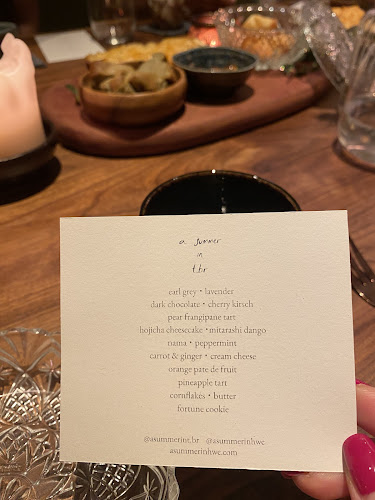 a summer
in
tbr
earl grey • lavender
dark chocolate • cherry kirsch
pear frangipane tart
hojicha cheesecake • mitarashi dango
nama • peppermint
carrot & ginger • cream cheese
orange pate de fruit
pineapple tart
cornflakes • butter
fortune cookie
@asummerint.br @asummerinhwc
asummerinhwc.com